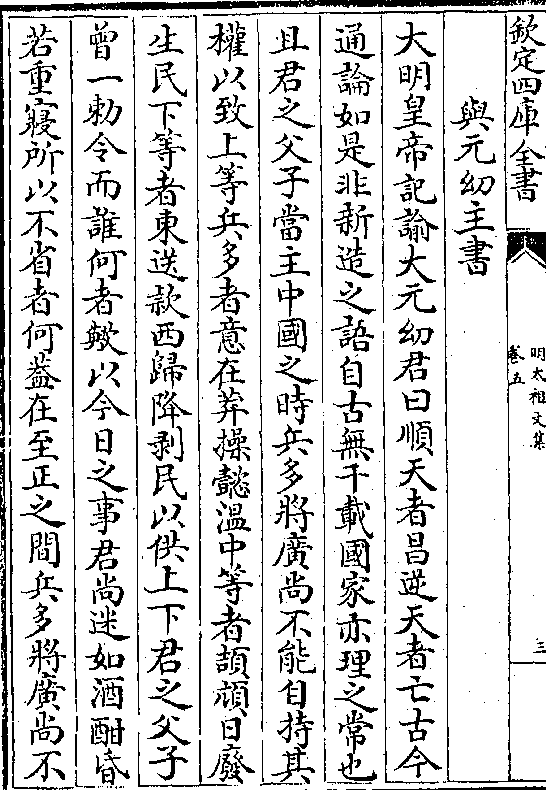 欽定四庫全書
明太祖文集
卷五
三
與元幼主書
大明皇帝記諭大元幼君曰順天者昌逆天者亡古今
通論如是非新造之語自古無千載國家亦理之常也
且君之父子當主中國之時兵多將廣尚不能自持其
權以致上等兵多者意在莽操懿溫中等者頡頏日廢
生民下等者東送款西歸降剥民以供上下君之父子
曾一勅令而誰何者歟以今日之事君尚迷如酒酣昏
若重寢所以不省者何葢在至正之間兵多將廣尚不